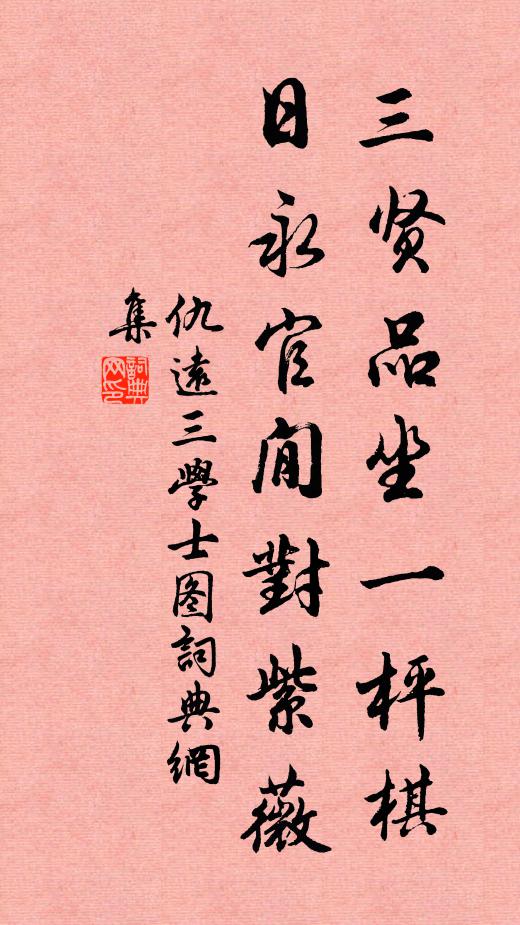 三贤品坐一枰棋
日永官闲對紫薇
仇遠三學士图詞典網
集
詞典
网印